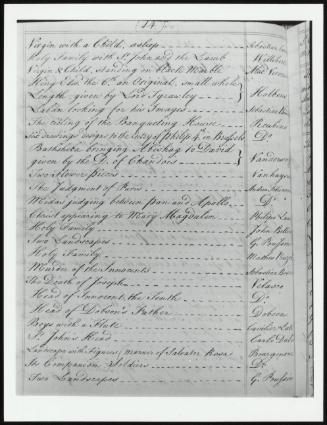 (14)
Virgin with a Child, asleep
Holy Family with St. John and the Lamb
Virgin & Child, standing on black Marble
King Edw. the 6th an Original, small whole
Length given by Lord
Holbens
Laban looking for his Images
The cieling of the Banqueting House
Reubens
Six drawings designs to the Entry of Philip 4th in Brussels
Do
Bathsheba bringing Abishag to David
given by the D. of Chandois
Vanderwerf
Two Flower pieces
The Judgment of Paris
Midas judging between pan and Apollo
Do
Christ appearing to Mary Magdalen
Philipo
Holy Family
John
Two Landscapes
G. Poussin
Holy Family
Murder of the Innocents
The Death of Joseph
Velasco
Head of Innocent the Tenth
Do
Head of Dobson's Father
Dobson
Boys with a Flute
St. John's Head
Carlo
Landscape with Figures, Manner of Salvator Rosa
Its Companion Soldiers
Do
Two Landscapes
G. Poussin